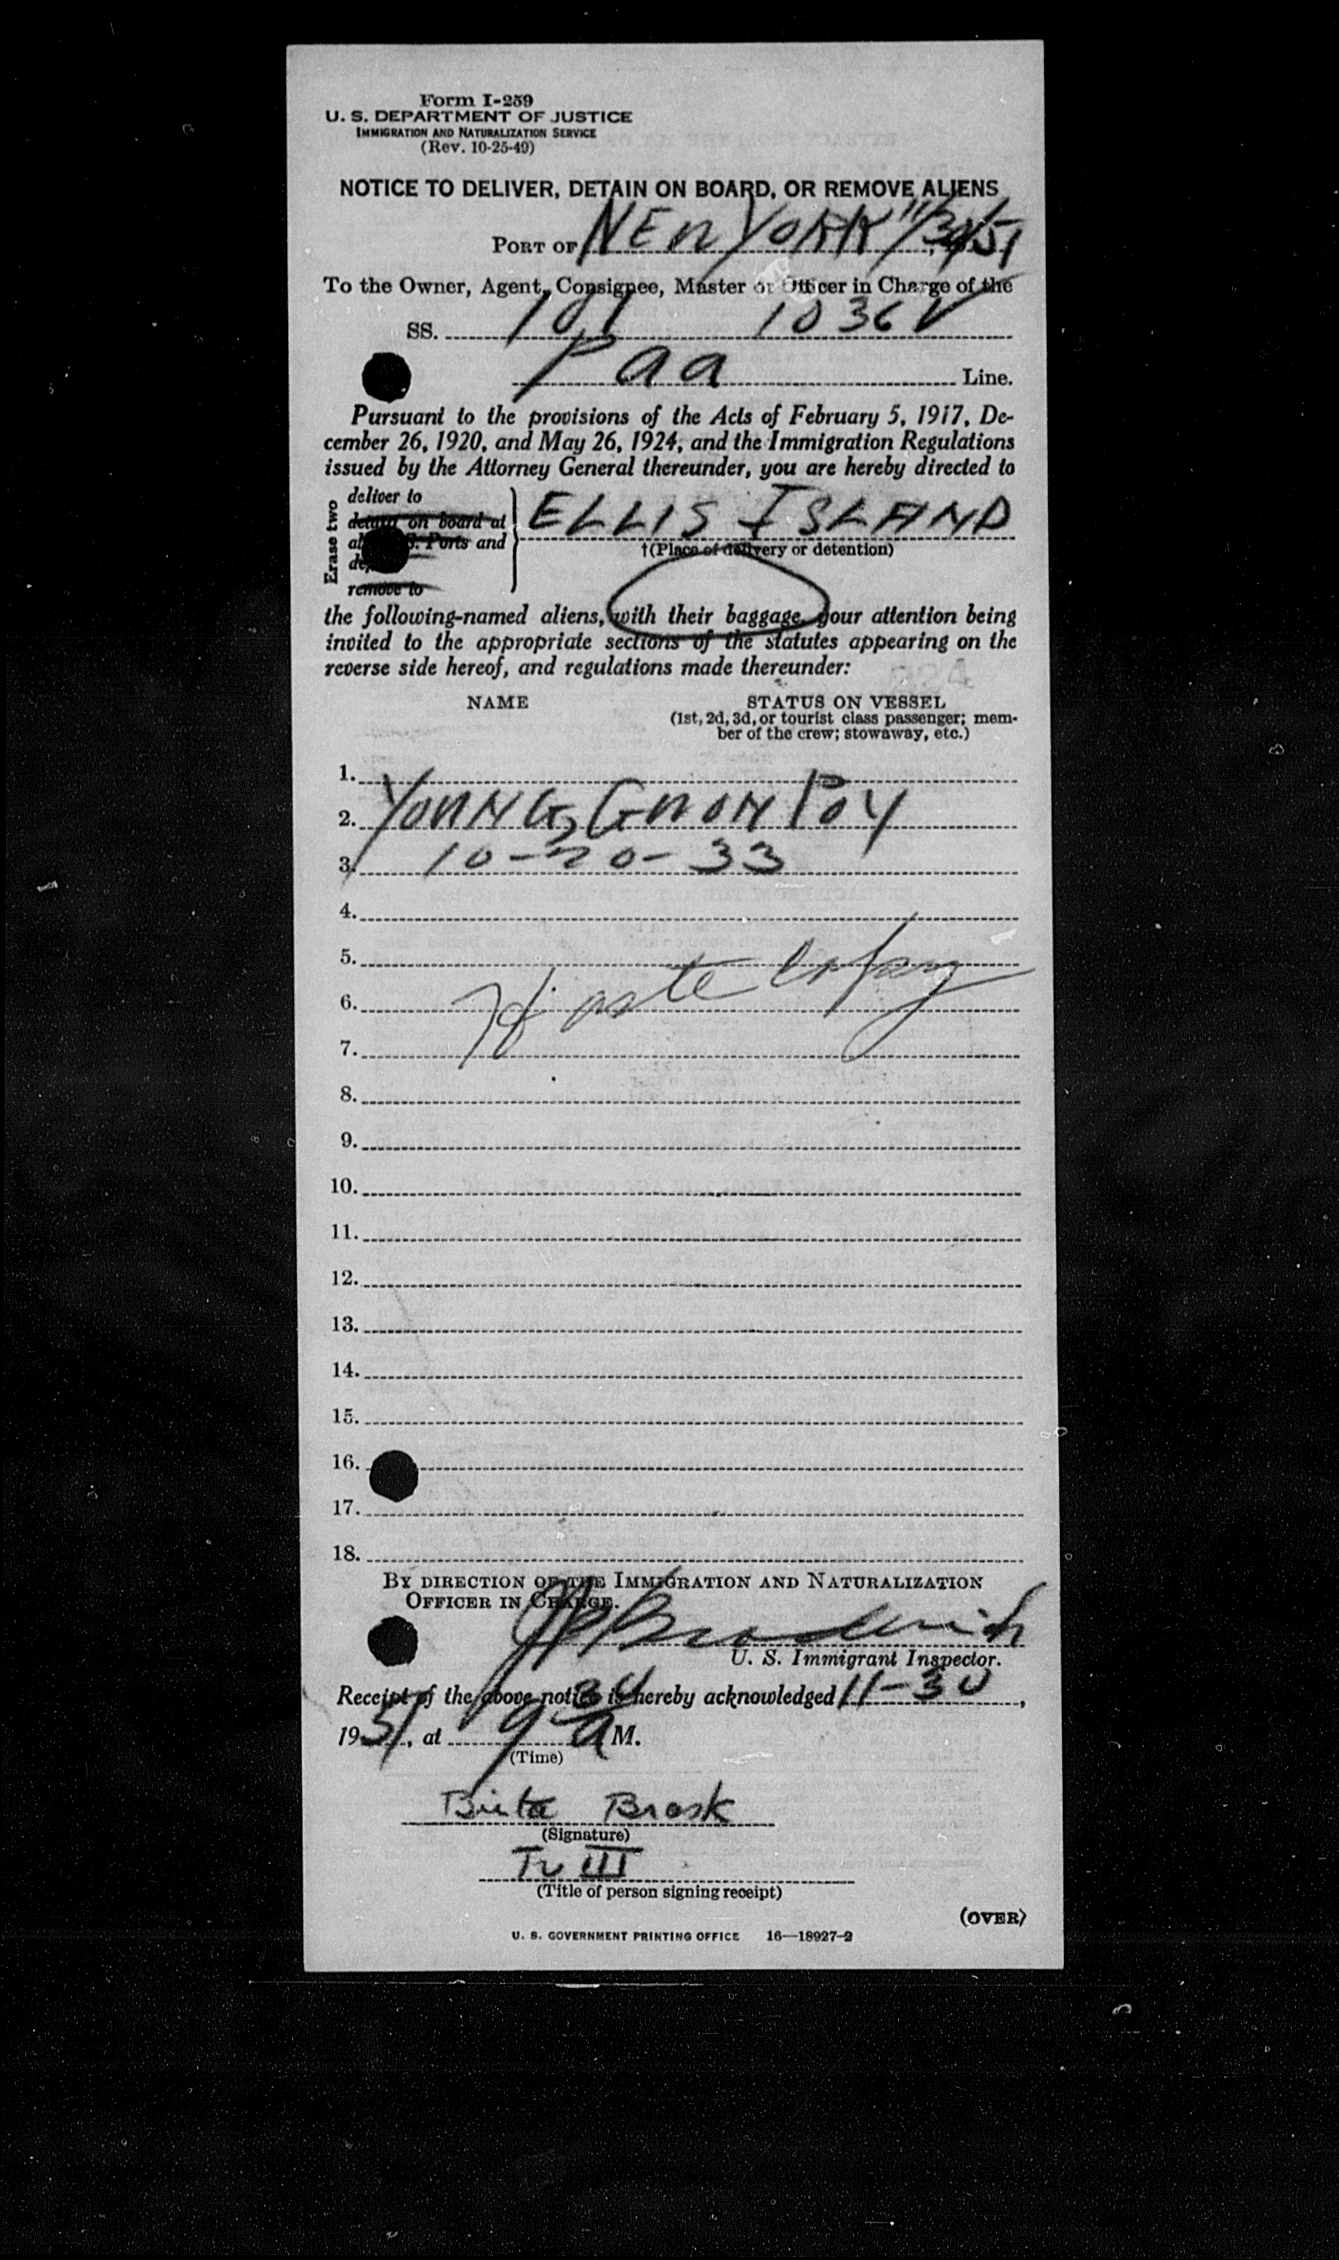 Form I-259
U. S. DEPARTMENT OF JUSTICE
IMMIGRATION AND NATURALIZATION SERVICE
(Rev. 10-25-49)
NOTICE TO DELIVER, DETAIN ON BOARD, OR REMOVE ALIENS
PORT OF NEW YORK 11/30/51
To the Owner, Agent, Consignee, Master or Officer in Charge of the
SS. 101 1036V
Paa Line.
Pursuant to the provisions of the Acts of February 5, 1917, De-
cember 26, 1920, and May 26, 1924, and the Immigration Regulations
issued by the Attorney General thereunder, you are hereby directed to
Erase two
deliver to
detain on board at
al S. Ports and
de
remove to
ELLIS ISLAND
†(Place of delivery or detention)
the following-named aliens, with their baggage, your attention being
invited to the appropriate sections of the statutes appearing on the
reverse side hereof, and regulations made thereunder:
NAME STATUS ON VESSEL
(1st, 2d, 3d, or tourist class passenger; mem-
ber of the crew; stowaway, etc.)
1.
2. YOUNG, GUON POY
3. 10-20-33
4.
5.
6. copy
7.
8.
9.
10.
11.
12.
13.
14.
15.
16.
17.
18.
BY DIRECTION OF THE IMMIGRATION AND NATURALIZATION
OFFICER IN CHARGE.
Broderick
U. S. Immigrant Inspector.
Receipt of the above notice is hereby acknowledged 11-30,
1951, at 9 30 A M.
(Time)
Brask
(Signature)
III
(Title of person signing receipt)
(OVER)
U. S. GOVERNMENT PRINTING OFFICE 16—18927-2